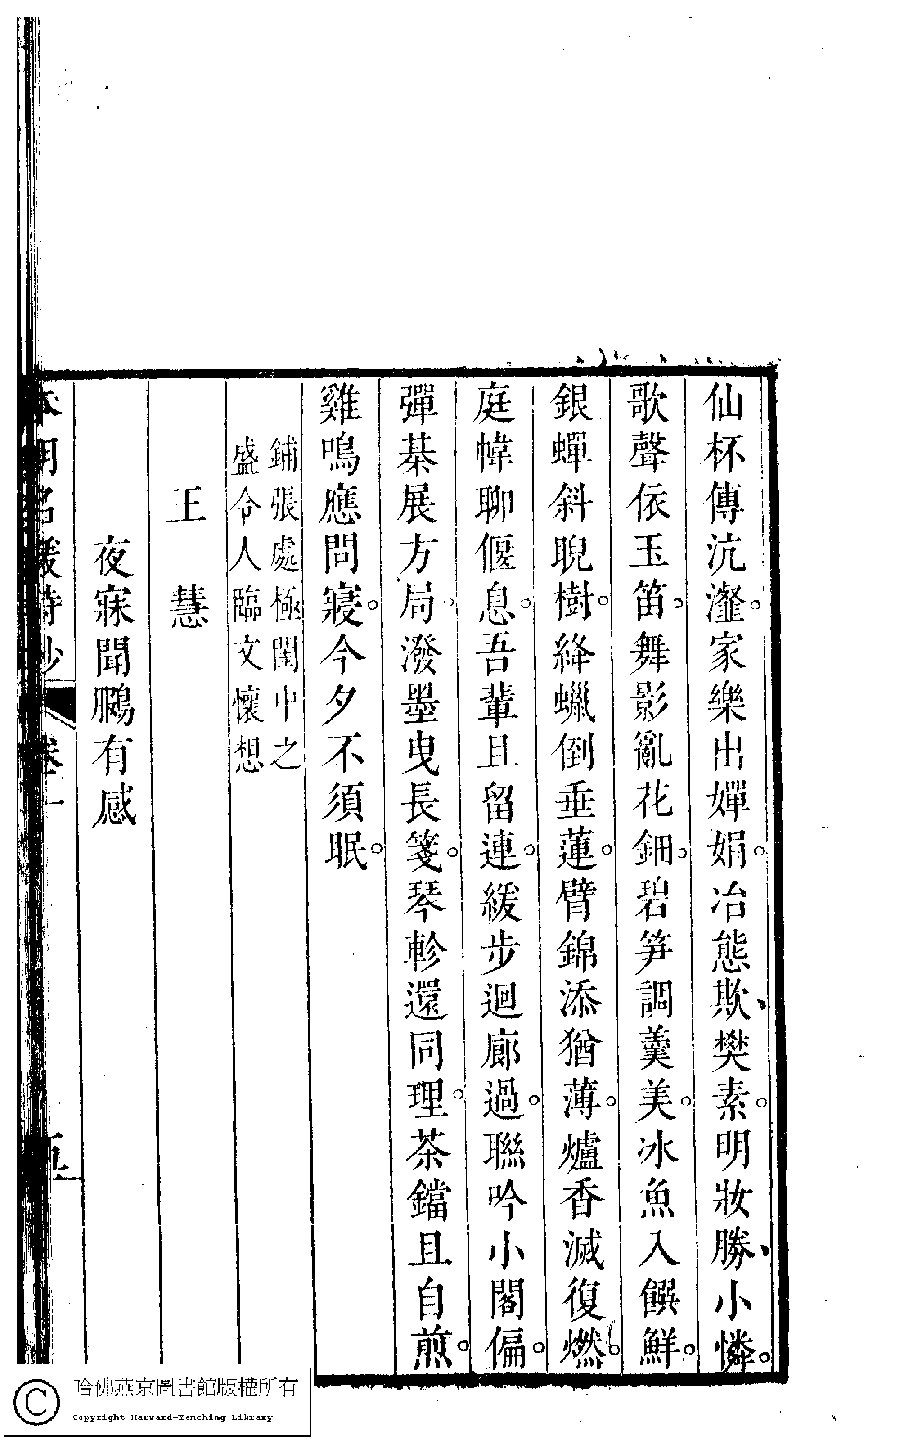 仙杯傳沆瀣。家樂出嬋娟。冶態欺樊素。明妝勝小憐。
歌聲依玉笛。舞影亂花鈿。碧笋調羹美。冰魚入饌鮮。
銀蟬斜睨樹。絳蠟倒垂蓮。臂錦添猶薄。爐香滅復燃。
庭幃聊偃息。吾輩且留連。緩步迴廊過。聯吟小閣偏。
彈棊展方局。潑墨曳長箋。琴軫還同理。茶鐺且自煎。
雞鳴應問寢。今夕不須眠。
鋪張處極閨中之
盛令人臨文懷想
王慧
夜寐聞鵩有感
本朝名媛詩鈔 卷一 五
哈佛燕京圖書館版權所有
Copyright Harvard-Yenching Library